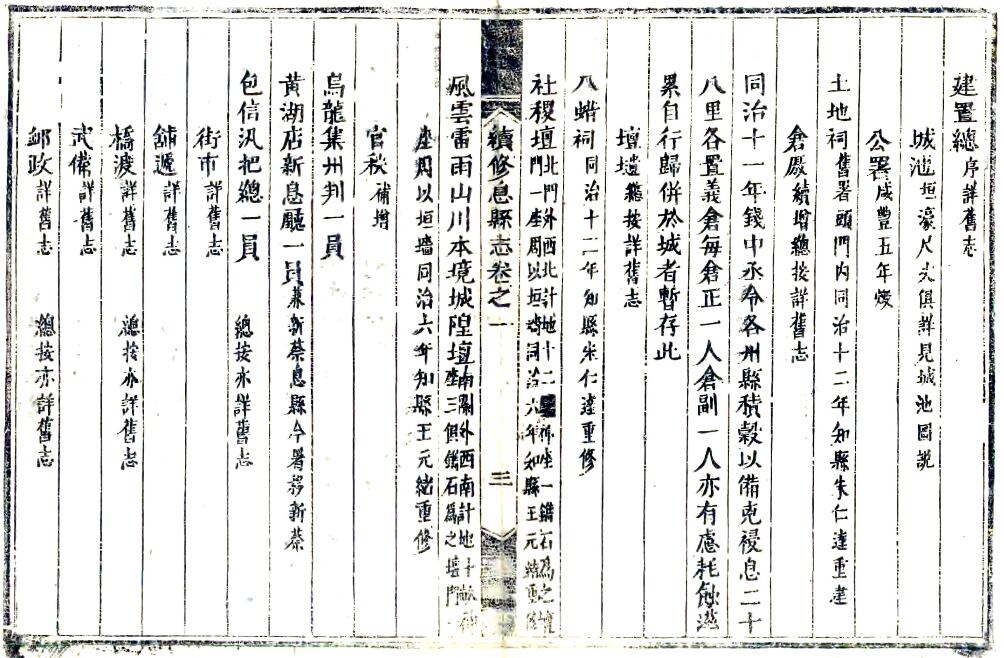 建置總序詳舊志
城池垣濠尺丈俱詳見城池圖説
公署咸豐五年燬
土地祠舊署頭門內同治十二年知縣朱仁達重建
倉廒續增總按詳舊志
同治十一年錢中丞令各州縣積穀以備兇祲息二十
八里各置義倉每倉正一人倉副一人亦有慮耗蝕滋
累自行歸併於城者暫存此
壇壝總按詳舊志
八蜡祠同治十二年知縣朱仁達重修
社稷壇北門外西北計地十二神座一鐫石為之壇
門一座周以垣墻同治六年知縣王元緒重修
續修息縣志卷之一 三
風雲雷雨山川本境城隍壇南關外西南計地十畝神
座三俱鐫石為之壇門
座周以垣墻同治六年知縣王元緒重修
官秩補增
烏龍集州判一員
黄湖店新息廳一員兼新蔡息縣今署移新蔡
包信汛把總一員 總按亦詳舊志
街市詳舊志
舖遞詳舊志
橋渡詳舊志 總按亦詳舊志
武備詳舊志
郵政詳舊志 總按亦詳舊志